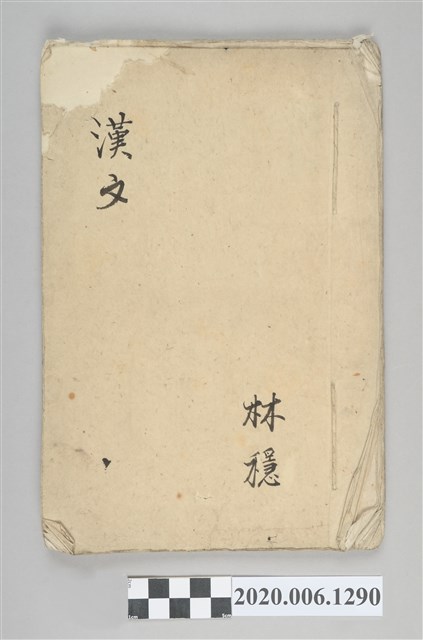 漢文
林穩
2020.006.1290